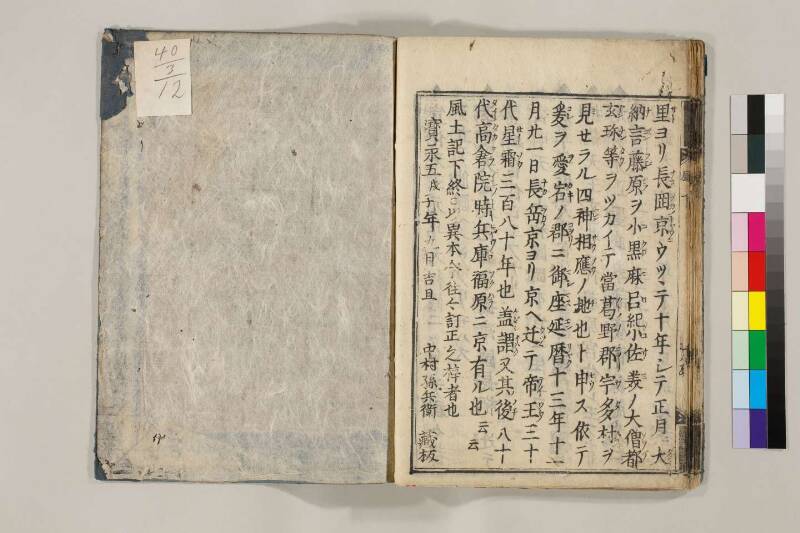 里ヨリ長岡京ウツシテ十年ニシテ正月ニ大
納言藤原ヲ小黒麻呂紀小佐美ノ大僧都
玄珎等ヲツカイテ當葛野郡宇多村ヲ
見セラル四神相應ノ地也ト申ス依テ
爰ヲ愛宕ノ郡ニ御座延暦十三年十一
月廿一日長岳京ヨリ京ヘ迁テ帝王三十
代星霜三百八十年也盖謂又其後八十
代高倉院時兵庫福原ニ京有ル也云云
風土記下終 異本 往々訂正之 者也
寳永五戊子年 月吉旦 中村孫兵衛 藏板
40
3
12